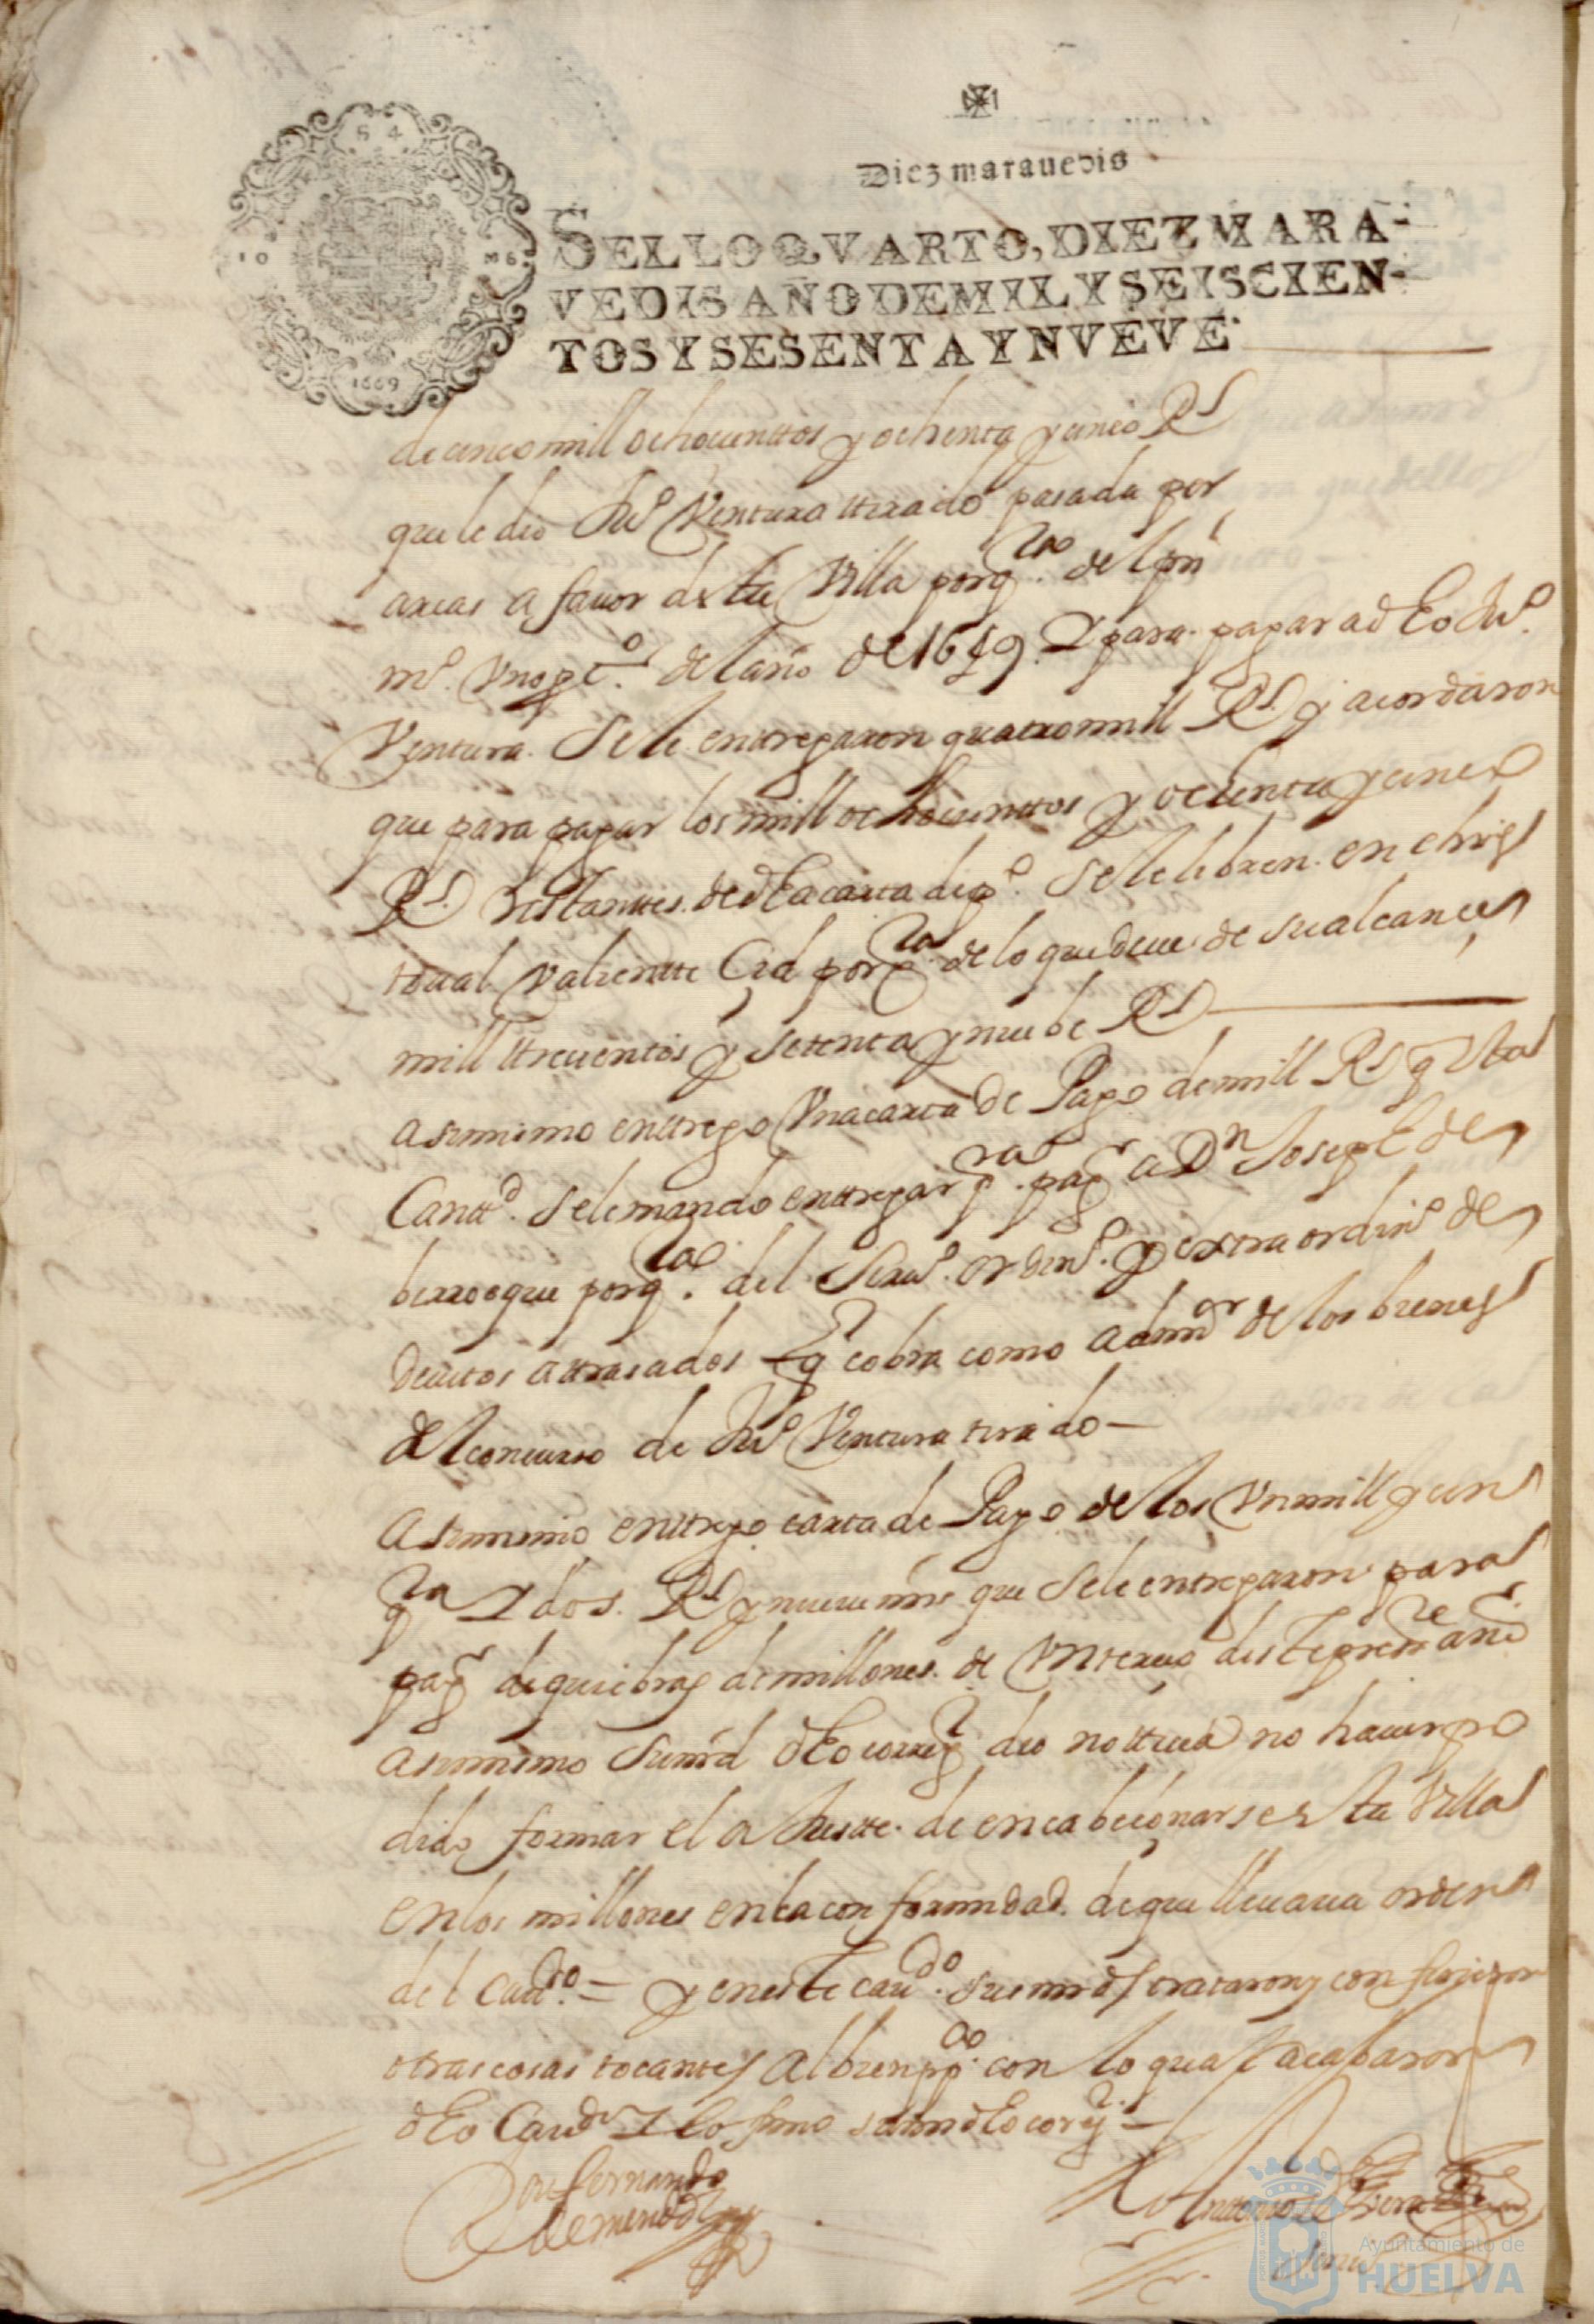 S 4
10 M6
1669
Diez marauedis
SELLO QVARTO, DIEZ MARA-
VEDIS AÑO DE MIL Y SEISCIEN-
TOS Y SESENTA Y NVEVE.
de cinco mill ochocienttos y ochenta y cinco Rs
que le dio Juº Ventura ttirado pasada por
arcas a fauor desta Villa por qta del pn
mº Vno pcº del año de 1659. Y para pagar a dho Juº
Ventura. Se le enttregaron quatro mill Rs y acordaron
que para pagar los mill ochocienttos y ochenta y cinco
Rs restanttes de dha carta de pº. Se le libren en chris
toual Valientte Cid por qta de lo que deue de su alcance
mill ttrecientos y setenta y nuebe Rs
asimismo enttrego Vna carta de Pago de mill Rs q esta
Canttd. Se le mando enttregar pra pagr a Dn Joseph de
berroegue por qta del Seruº ordinº y extraordinº de
deuitos attrasados q cobra como admor de los bienes
del concurso de Juº Ventura tirado
asimismo enttrego carta de Pago de los Vn mill y cin
qta Y dos Rs y nueue mrs que se le entregaron para
pagr de quiebras de millones de Vn tercio deste presete año
asimismo su md dho corregr dio notticia no hauer po
dido formar el ajustte de encabeçonarse esta Villa
en los millones en la conformidad de que lleuaua orden
del caudº = y en este caudº sus mrds trataron y confirieron
otras cosas tocantes al bien ppco con lo qual acabaron
dho Caudº Y lo firmo su md dho corregr
Don fernando
de mendoza
Antonio de
Ayuntamiento de
HUELVA